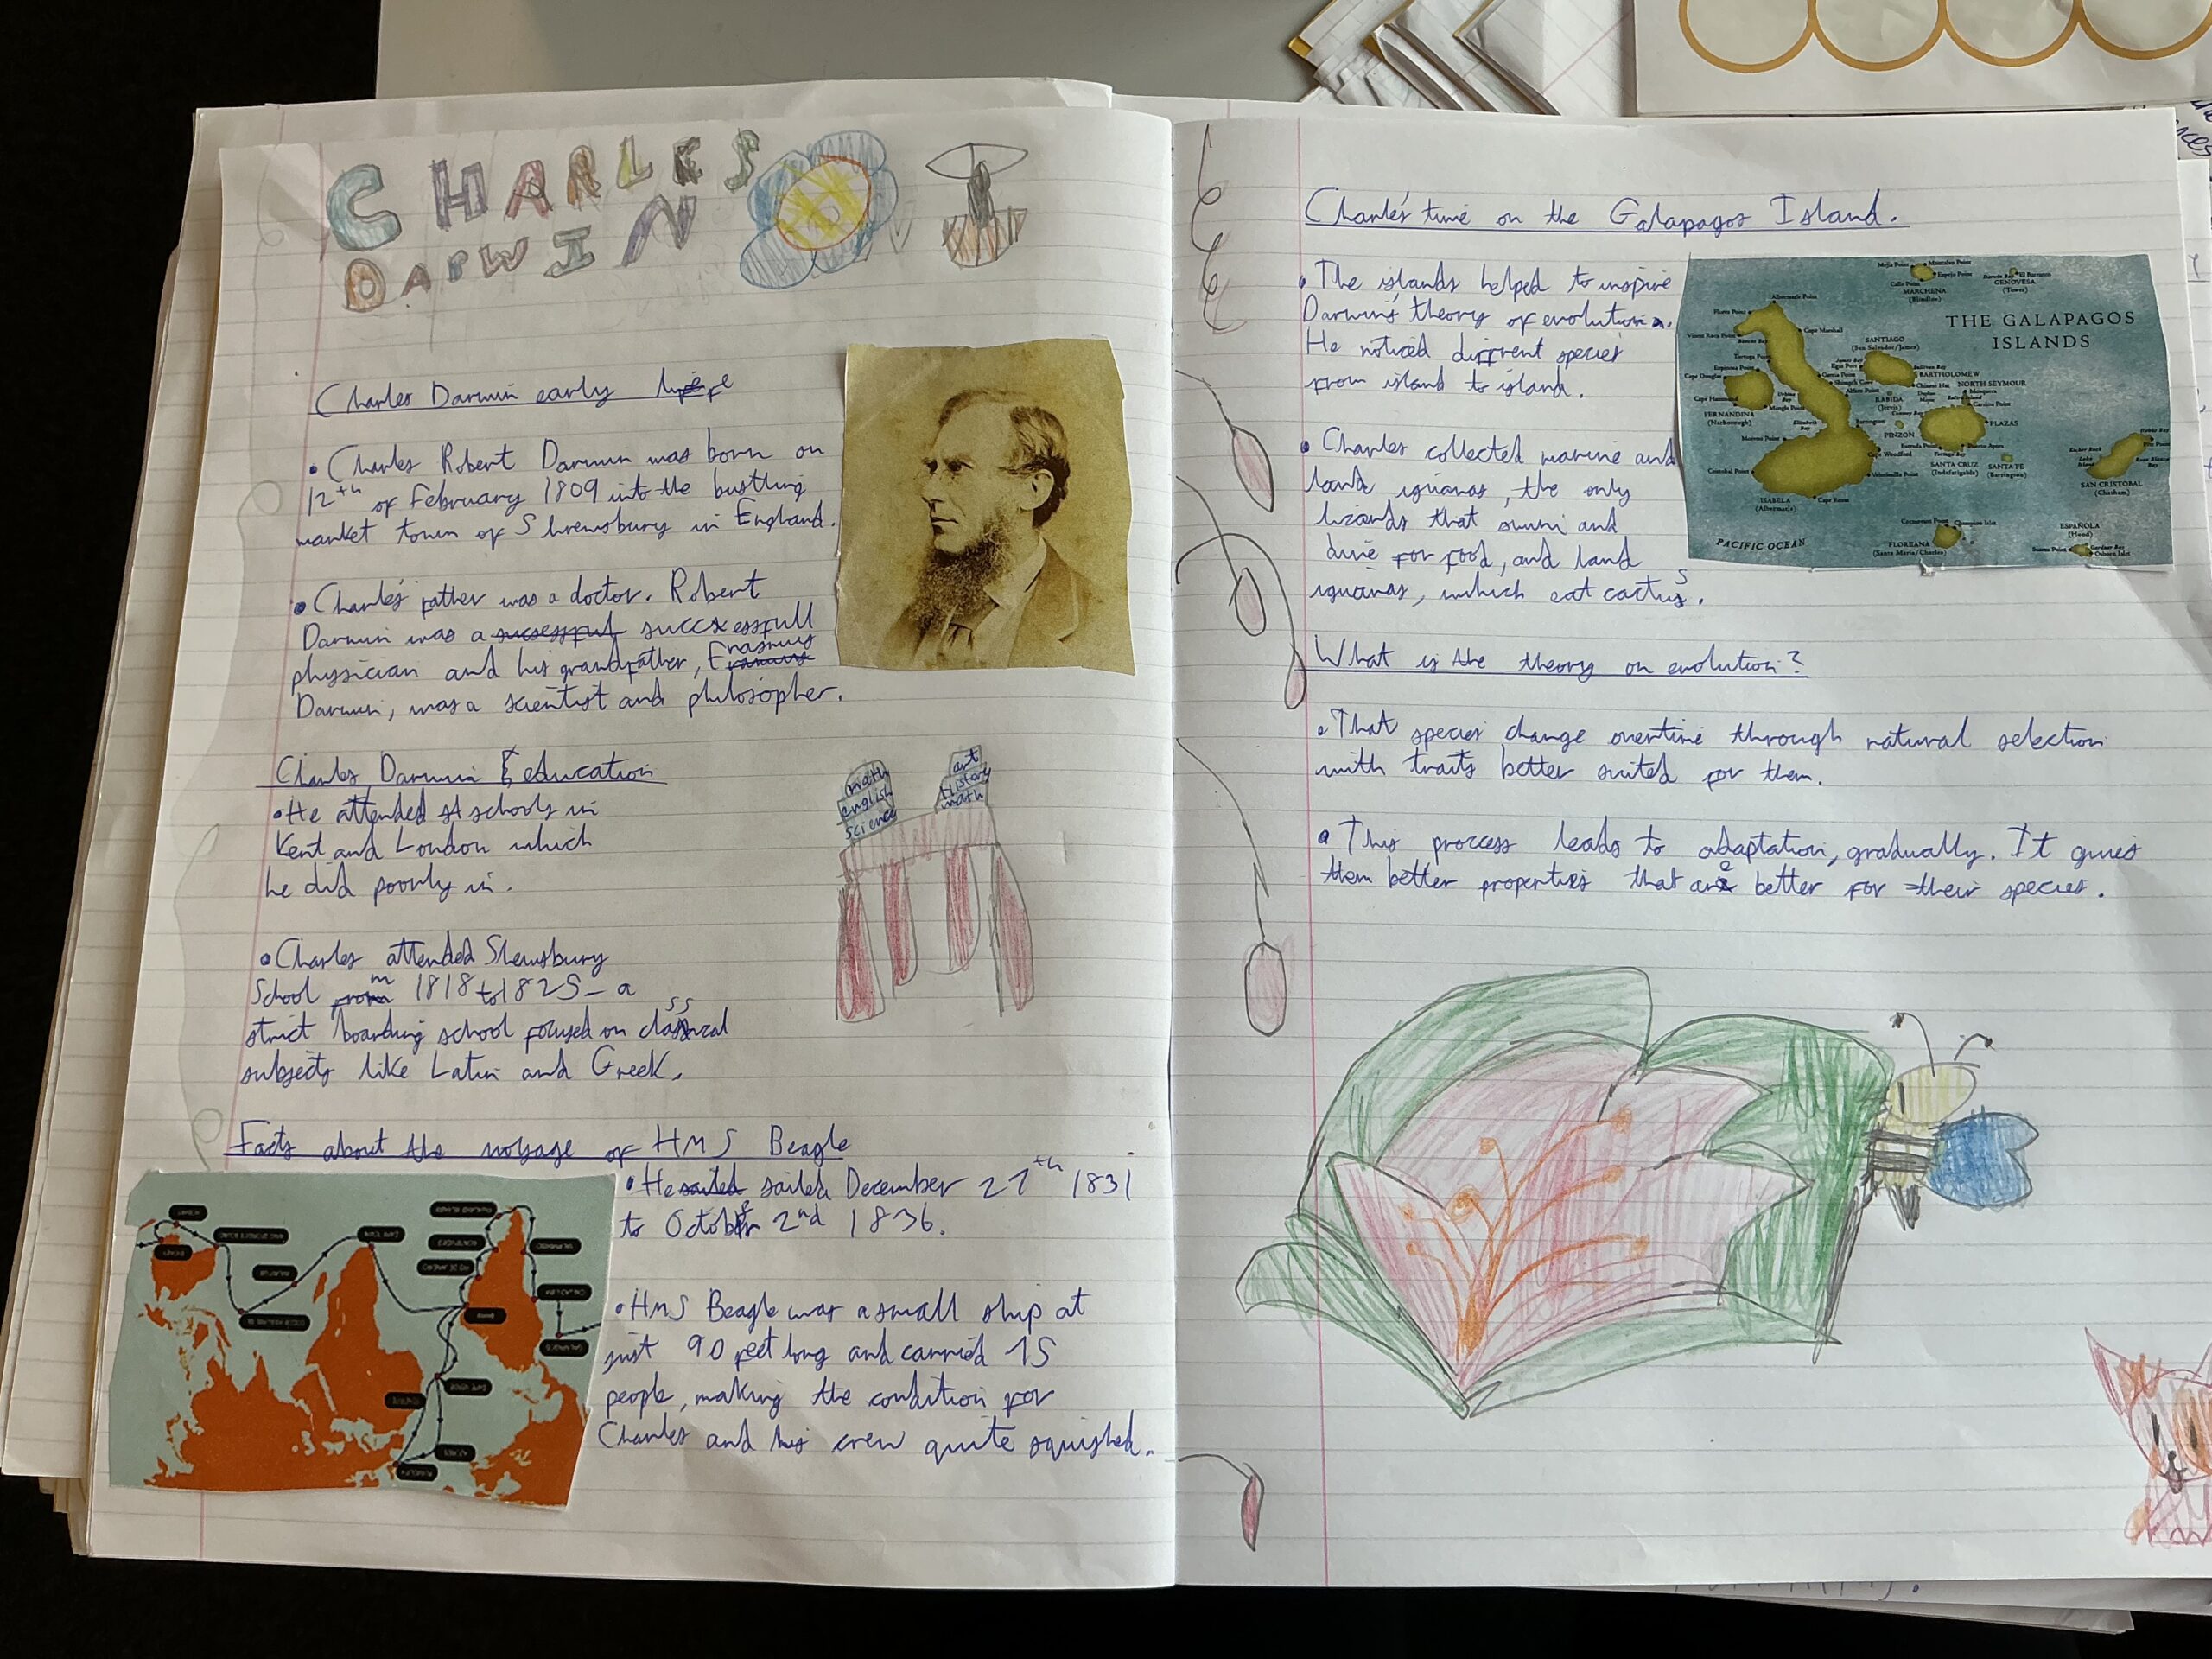 CHARLES
DARWIN
Charles Darwin early life
• Charles Robert Darwin was born on
12th of February 1809 into the bustling
market town of Shrewsbury in England.
• Charles' father was a doctor. Robert
Darwin was a succsessfull
physician and his grandfather, Erasmus
Darwin, was a scientist and philosopher.
Charles Darwin & education
• He attended st schools in
Kent and London which
he did poorly in.
math
english
science
art
History
math
• Charles attended Shewsbury
School from 1818 to 1825 - a
strict boarding school focused on classical
subjects like Latin and Greek.
Facts about the voyage of HMS Beagle
• He sailed sailed December 27th 1831
to October 2nd 1836.
• HMS Beagle was a small ship at
just 90 feet long and carried 75
people, making the condition for
Charles and his crew quite squished.
Charles' time on the Galapagos Island.
• The islands helped to inspire
Darwin's theory of evolution.
He noticed diffrent species
from island to island.
• Charles collected marine and
land iguanas, the only
lizards that swim and
dive for food, and land
iguanas, which eat cactus.
THE GALAPAGOS
ISLANDS
MARCHENA
(Bindloe)
GENOVESA
(Tower)
SANTIAGO
(San Salvador/James)
BARTHOLOMEW
NORTH SEYMOUR
RABIDA
(Jervis)
FERNANDINA
(Narborough)
PINZON
PLAZAS
SANTA CRUZ
(Indefatigable)
SANTA FE
(Barrington)
SAN CRISTOBAL
(Chatham)
ISABELA
(Albermarle)
FLOREANA
(Santa Maria/Charles)
ESPAÑOLA
(Hood)
PACIFIC OCEAN
What is the theory on evolution?
• That species change overtime through natural selection
with traits better suited for them.
• This process leads to adaptation, gradually. It gives
them better properties that are better for their species.